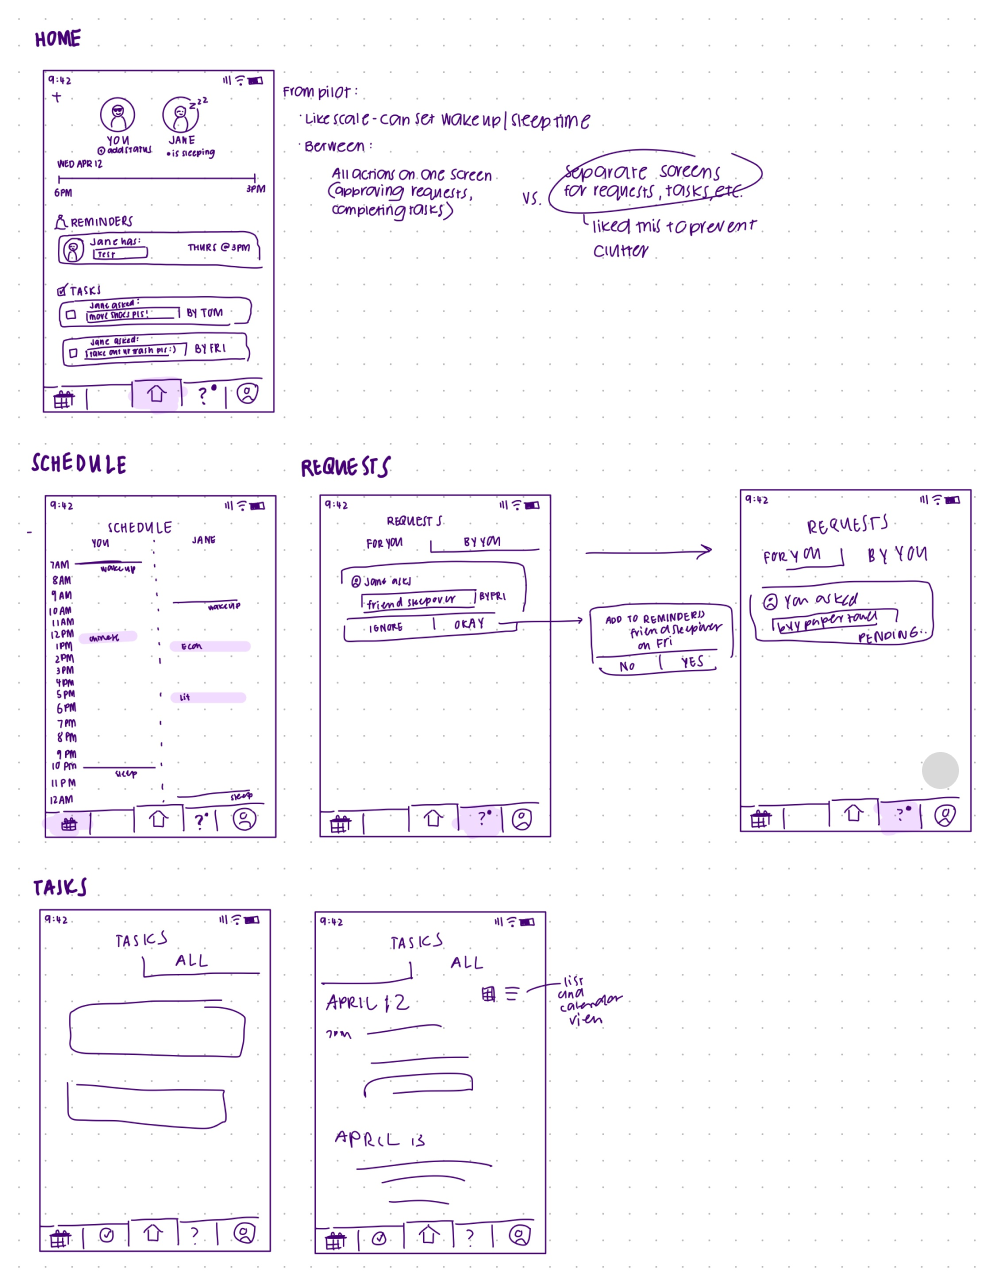 HOME
9:42
+
zzz
YOU
JANE
+ add status
• is sleeping
WED APR 12
6PM
3PM
REMINDERS
Jane has:
Test
THURS @ 3PM
TASKS
Jane asked:
move shoes pls!
BY TOM
Jane asked:
take out ur trash plz :)
BY FRI
?
From pilot:
· Like scale - can set wake up / sleep time
· Between:
All actions on one screen
(approving requests,
completing tasks)
vs.
separate screens
for requests, tasks, etc.
liked this to prevent
clutter
SCHEDULE
9:42
SCHEDULE
YOU
JANE
7AM
wake up
8AM
9AM
wake up
10AM
11AM
12PM
1PM
Econ
2PM
3PM
4PM
5PM
lit
6PM
7PM
8PM
9PM
10PM
sleep
11PM
12AM
sleep
?
REQUESTS
9:42
REQUESTS
FOR YOU
BY YOU
Jane asks
friend sleepover
BY FRI
IGNORE
OKAY
?
ADD TO REMINDERS
friend sleepover
on Fri
NO
YES
9:42
REQUESTS
FOR YOU
BY YOU
You asked
buy paper towel
PENDING..
?
TASKS
9:42
TASKS
ALL
?
9:42
TASKS
ALL
APRIL 12
7PM
APRIL 13
?
list
and
calendar
view